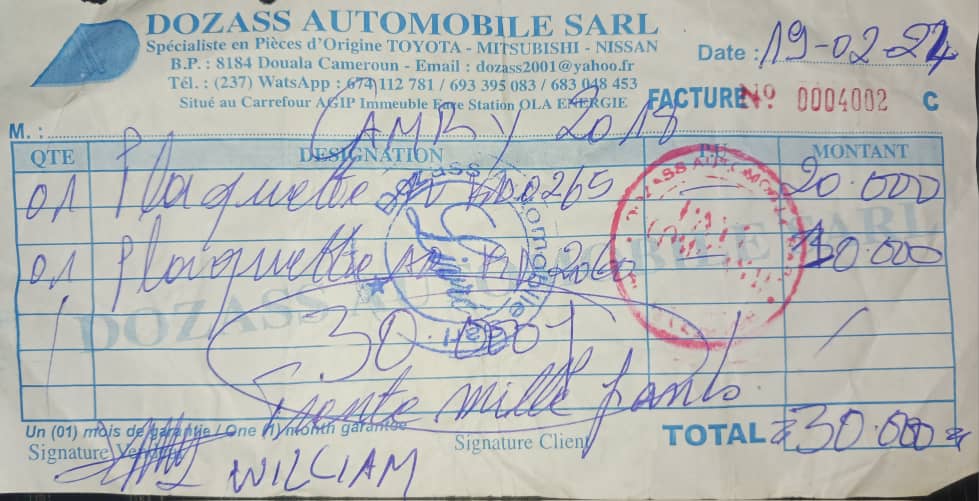 DOZASS AUTOMOBILE SARL
Spécialiste en Pièces d'Origine TOYOTA - MITSUBISHI - NISSAN
B.P. : 8184 Douala Cameroun - Email : dozass2001@yahoo.fr
Tél. : (237) WatsApp : 674 112 781 / 693 395 083 / 683 048 453
Situé au Carrefour AGIP Immeuble Face Station OLA ENERGIE
Date : 19-02-24
FACTURE Nº 0004002 C
M. : CAMRY 2018
QTE DESIGNATION P.U. MONTANT
01 Plaquette 0265 20.000
01 Plaquette AR 2060 30.000
DOZASS AUTOMOBILE SARL
30.000F
Trente mille francs
Un (01) mois de garantie / One (1) month garantee
Signature Vendeur
Signature Client
TOTAL 30.000
WILLIAM